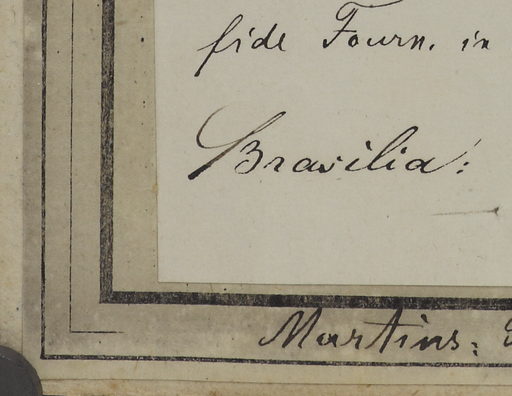 fide Fourn. in
Brasilia:
Martins: